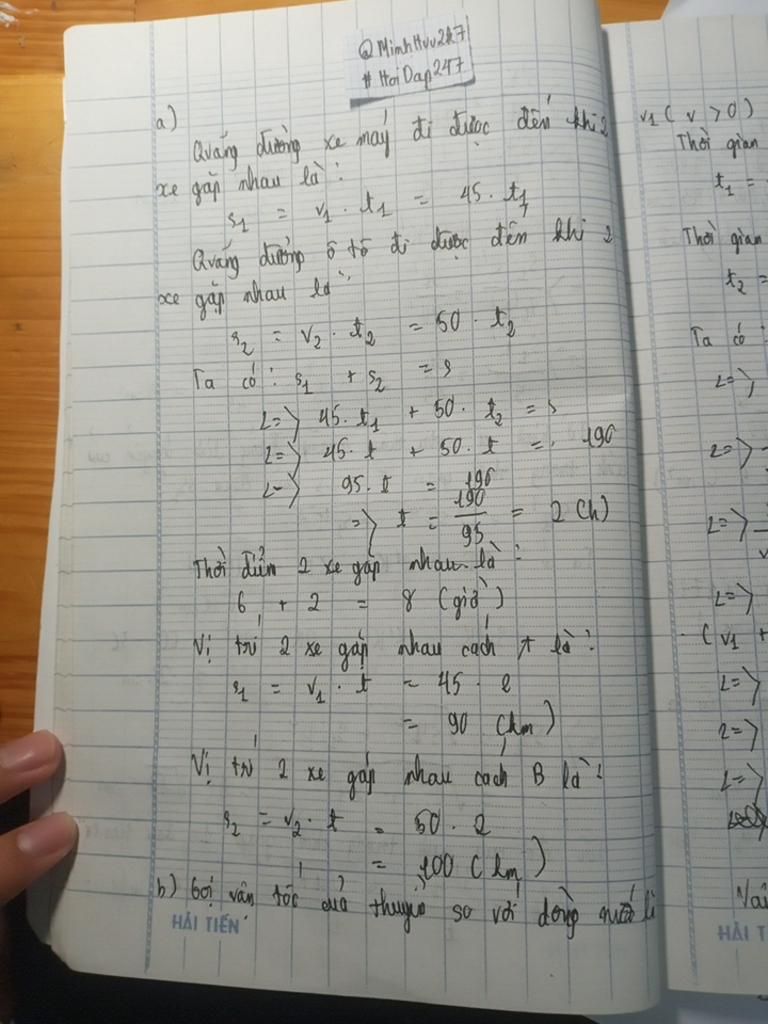 @MinhHuu2k7
# HoiDap247
a)
Quãng đường xe máy đi được đến khi 2
xe gặp nhau là :
s1 = v1 . t1 = 45. t1
Quãng đường ô tô đi được đến khi 2
xe gặp nhau là :
s2 = v2 . t2 = 50 . t2
Ta có : s1 + s2 = s
<=> 45. t1 + 50. t2 = s
<=> 45. t + 50. t = 190
<=> 95. t = 190
=> t = 190/95 = 2 (h)
Thời điểm 2 xe gặp nhau là :
6 + 2 = 8 (giờ)
Vị trí 2 xe gặp nhau cách A là :
s1 = v1 . t = 45 . 2
= 90 (km)
Vị trí 2 xe gặp nhau cách B là :
s2 = v2 . t = 50 . 2
= 100 (km)
b) Gọi vận tốc của thuyền so với dòng nước là
HẢI TIẾN
v1 ( v > 0)
Thời gian
t1 =
Thời gian
t2 =
Ta có
<=>
<=>
<=>
<=>
( v1 +
<=>
<=>
<=>
HẢI T